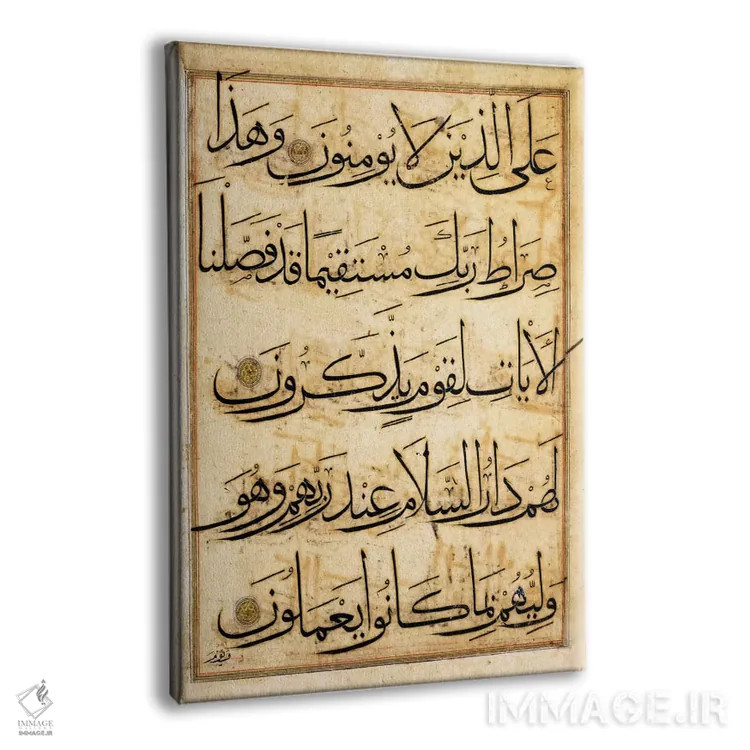 عَلَى الَّذِينَ لَا يُؤْمِنُونَ وَهَذَا
صِرَاطُ رَبِّكَ مُسْتَقِيمًا قَدْ فَصَّلْنَا
الْأَيَاتِ لِقَوْمٍ يَذَّكَّرُونَ
لَهُمْ دَارُ السَّلَامِ عِنْدَ رَبِّهِمْ وَهُوَ
وَلِيُّهُمْ بِمَا كَانُوا يَعْمَلُونَ
وَيَوْمَ
IMMAGE
IMMAGE.IR
IMMAGE.IR